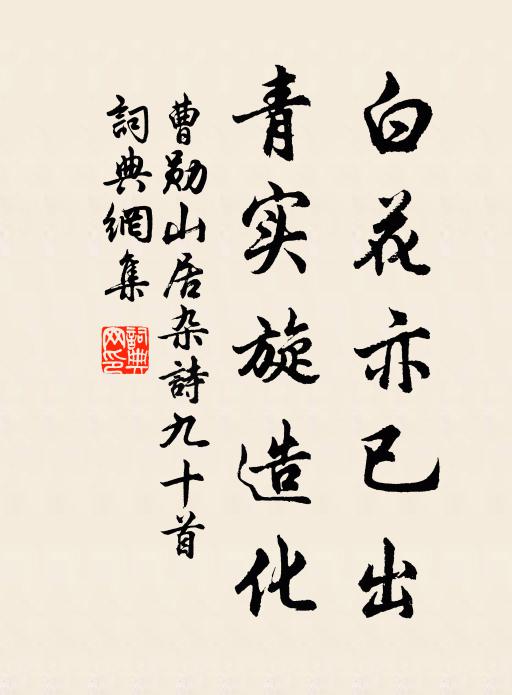 白花亦已出
青实旋造化
曹勋山居杂詩九十首
詞典網集
詞典網印